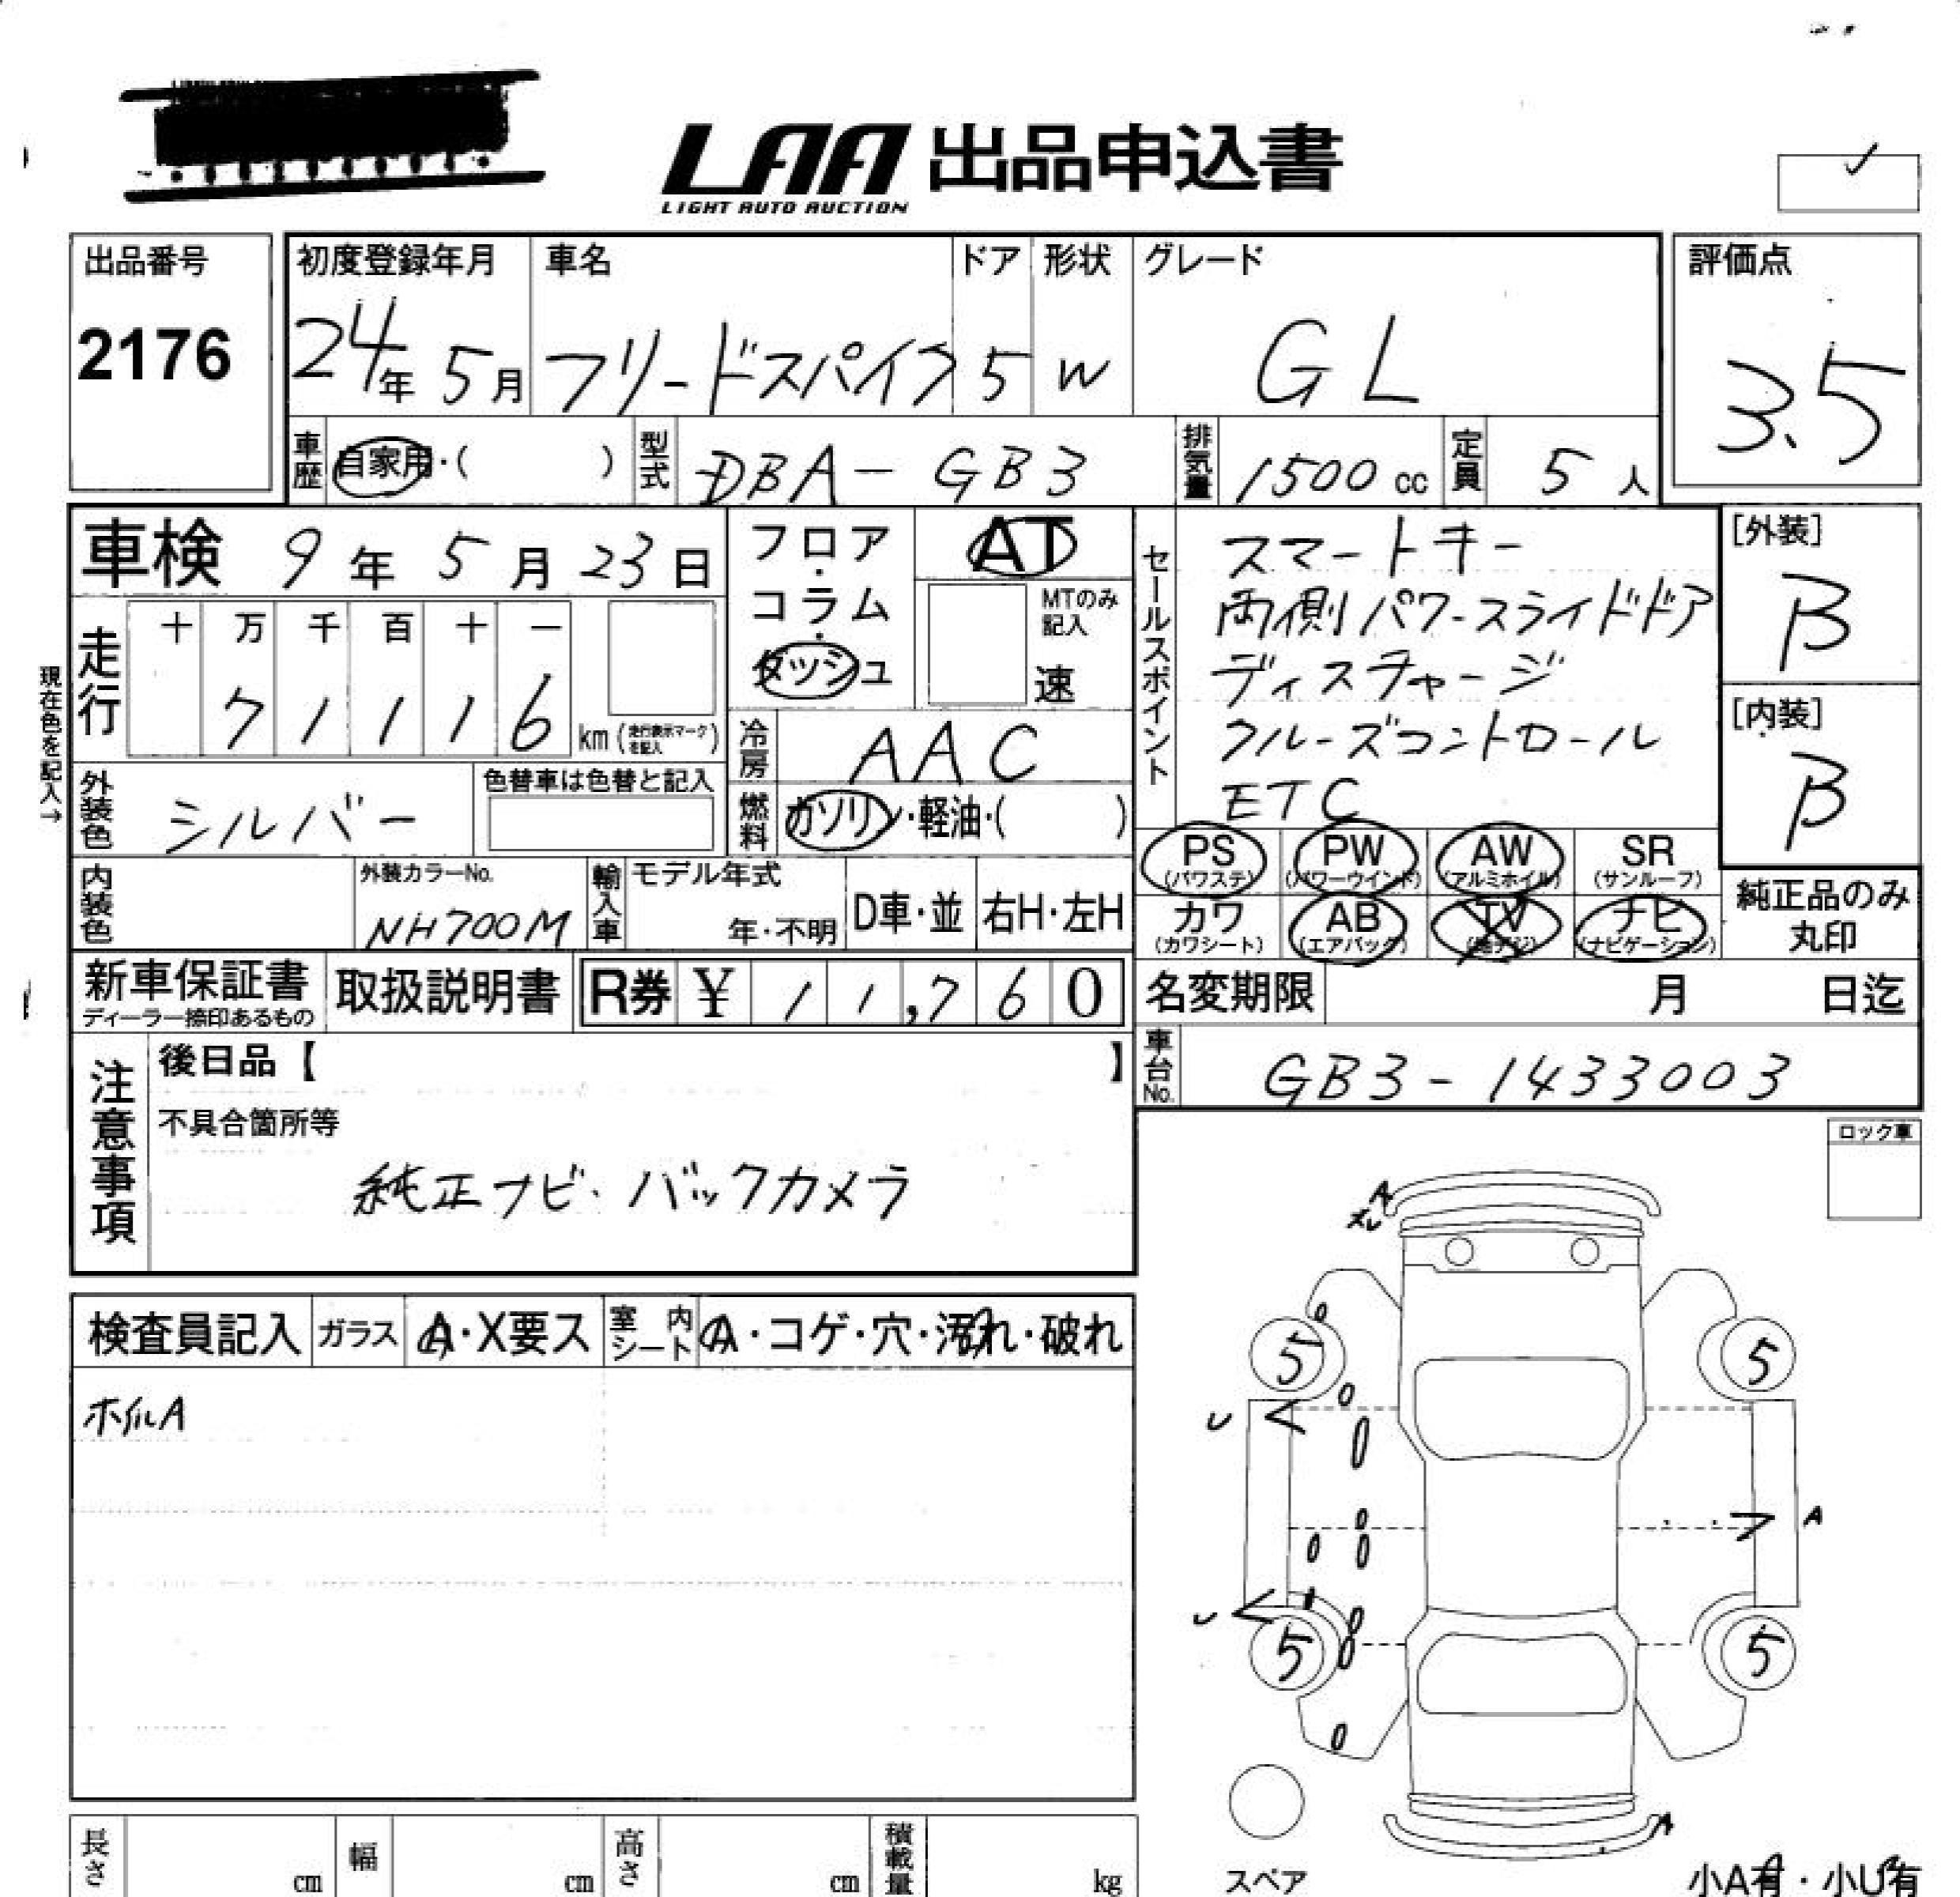 LAA 出品申込書
LIGHT AUTO AUCTION
出品番号
2176
初度登録年月
24年 5月
車名
フリードスパイク
ドア
5
形状
W
グレード
GL
評価点
3.5
車歴
自家用・( )
型式
DBA-GB3
排気量
1500 cc
定員
5 人
車検 9年 5月 23日
フロア・コラム・ダッシュ
AT
MTのみ記入
速
現在色を記入→
走行
十 万 千 百 十 一
7 1 1 1 6 km (走行表示マークを記入)
冷房
AAC
外装色
シルバー
色替車は色替と記入
燃料
ガソリン・軽油・( )
内装色
外装カラーNo.
NH700M
輸入車
モデル年式
年・不明
D車・並
右H・左H
セールスポイント
スマートキー
両側パワースライドドア
ディスチャージ
クルーズコントロール
ETC
[外装]
B
[内装]
B
PS (パワステ)
PW (パワーウインド)
AW (アルミホイル)
SR (サンルーフ)
カワ (カワシート)
AB (エアバック)
TV (地デジ)
ナビ (ナビゲーション)
純正品のみ丸印
新車保証書
ディーラー捺印あるもの
取扱説明書
R券 ¥ 11,760
名変期限 月 日迄
車台No.
GB3-1433003
注意事項
後日品【 】
不具合箇所等
純正ナビ・バックカメラ
ロック車
検査員記入
ガラス
A・X要ス
室内シート
A・コゲ・穴・汚れ・破れ
ホイルA
A
5
5
U
A
U
5
5
A
スペア
小A有・小U有
長さ cm
幅 cm
高さ cm
積載量 kg